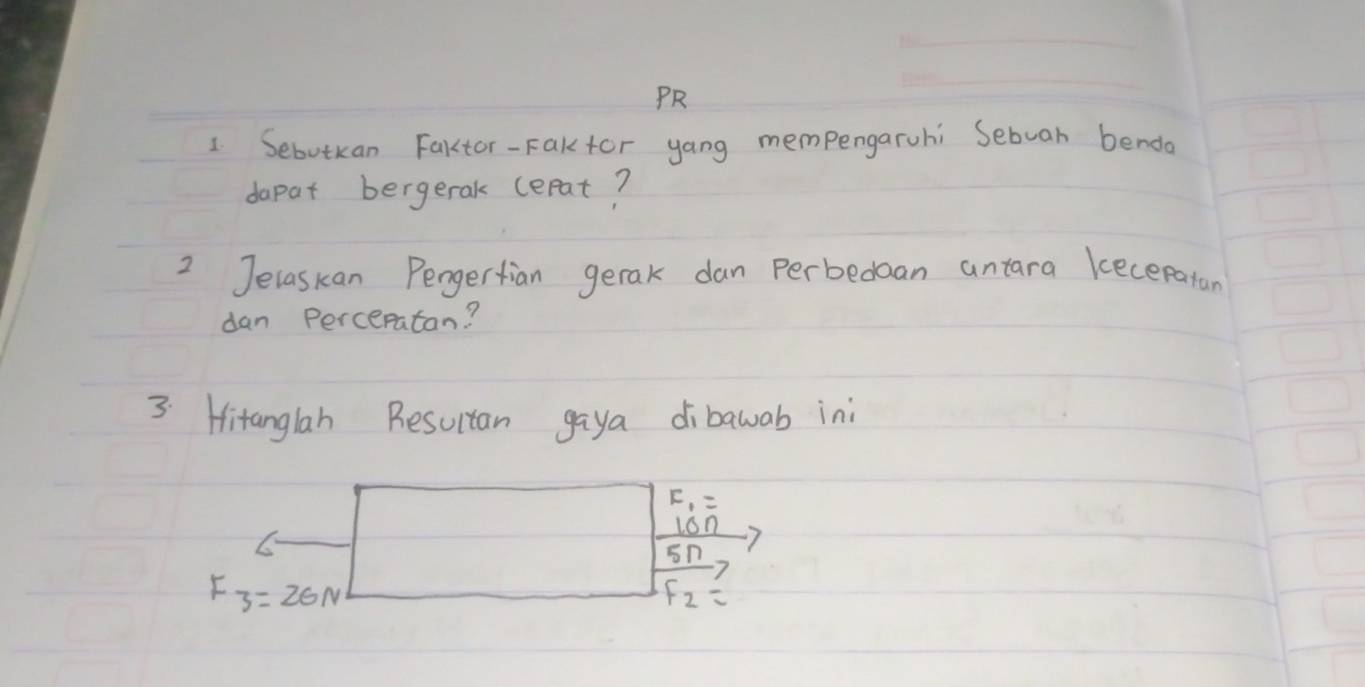 PR
1. Sebutkan Faktor-Faktor yang mempengaruhi Sebuah benda
dapat bergerak cepat?
2 Jelaskan Pengertian gerak dan Perbedaan antara kecepatan
dan Percepatan?
3. Hitanglah Resultan gaya dibawab ini
F1 =
10n
5n
F3 = 20N
F2 =